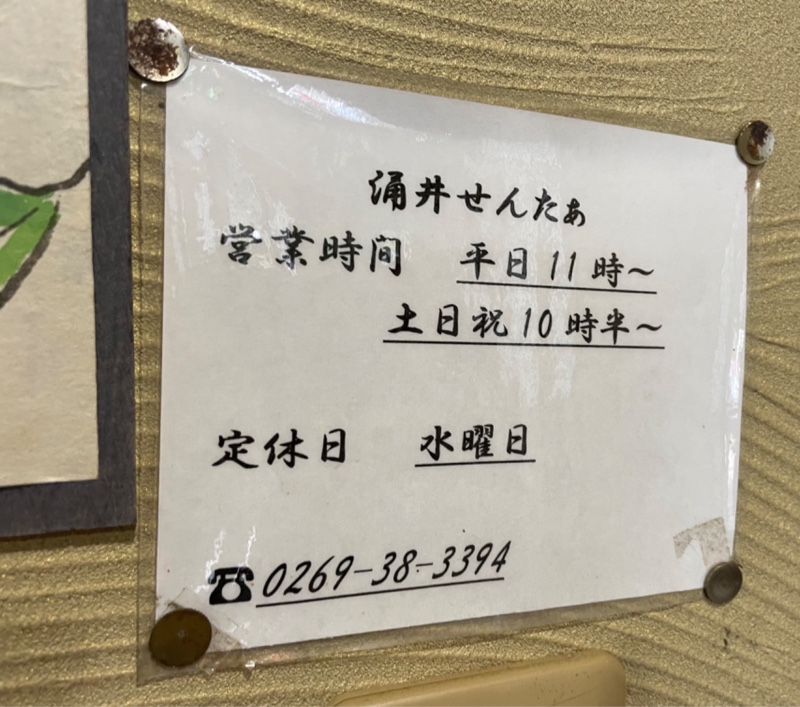 涌井せんたぁ
営業時間 平日11時～
土日祝10時半～
定休日 水曜日
☎0269-38-3394